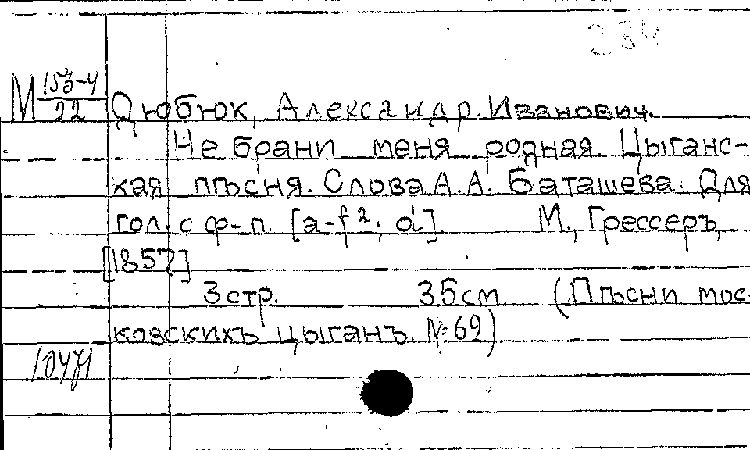 М 153-4
22
Дюбюк, Александр Иванович.
Не брани меня родная. Цыганс-
кая пѣсня. Слова А.А. Баташева. Для
гол. с ф-п. [a-f²; d]. М., Грессеръ,
[1857]
3 стр. 35 см (Пѣсни мос-
ковскихъ цыганъ. № 69)